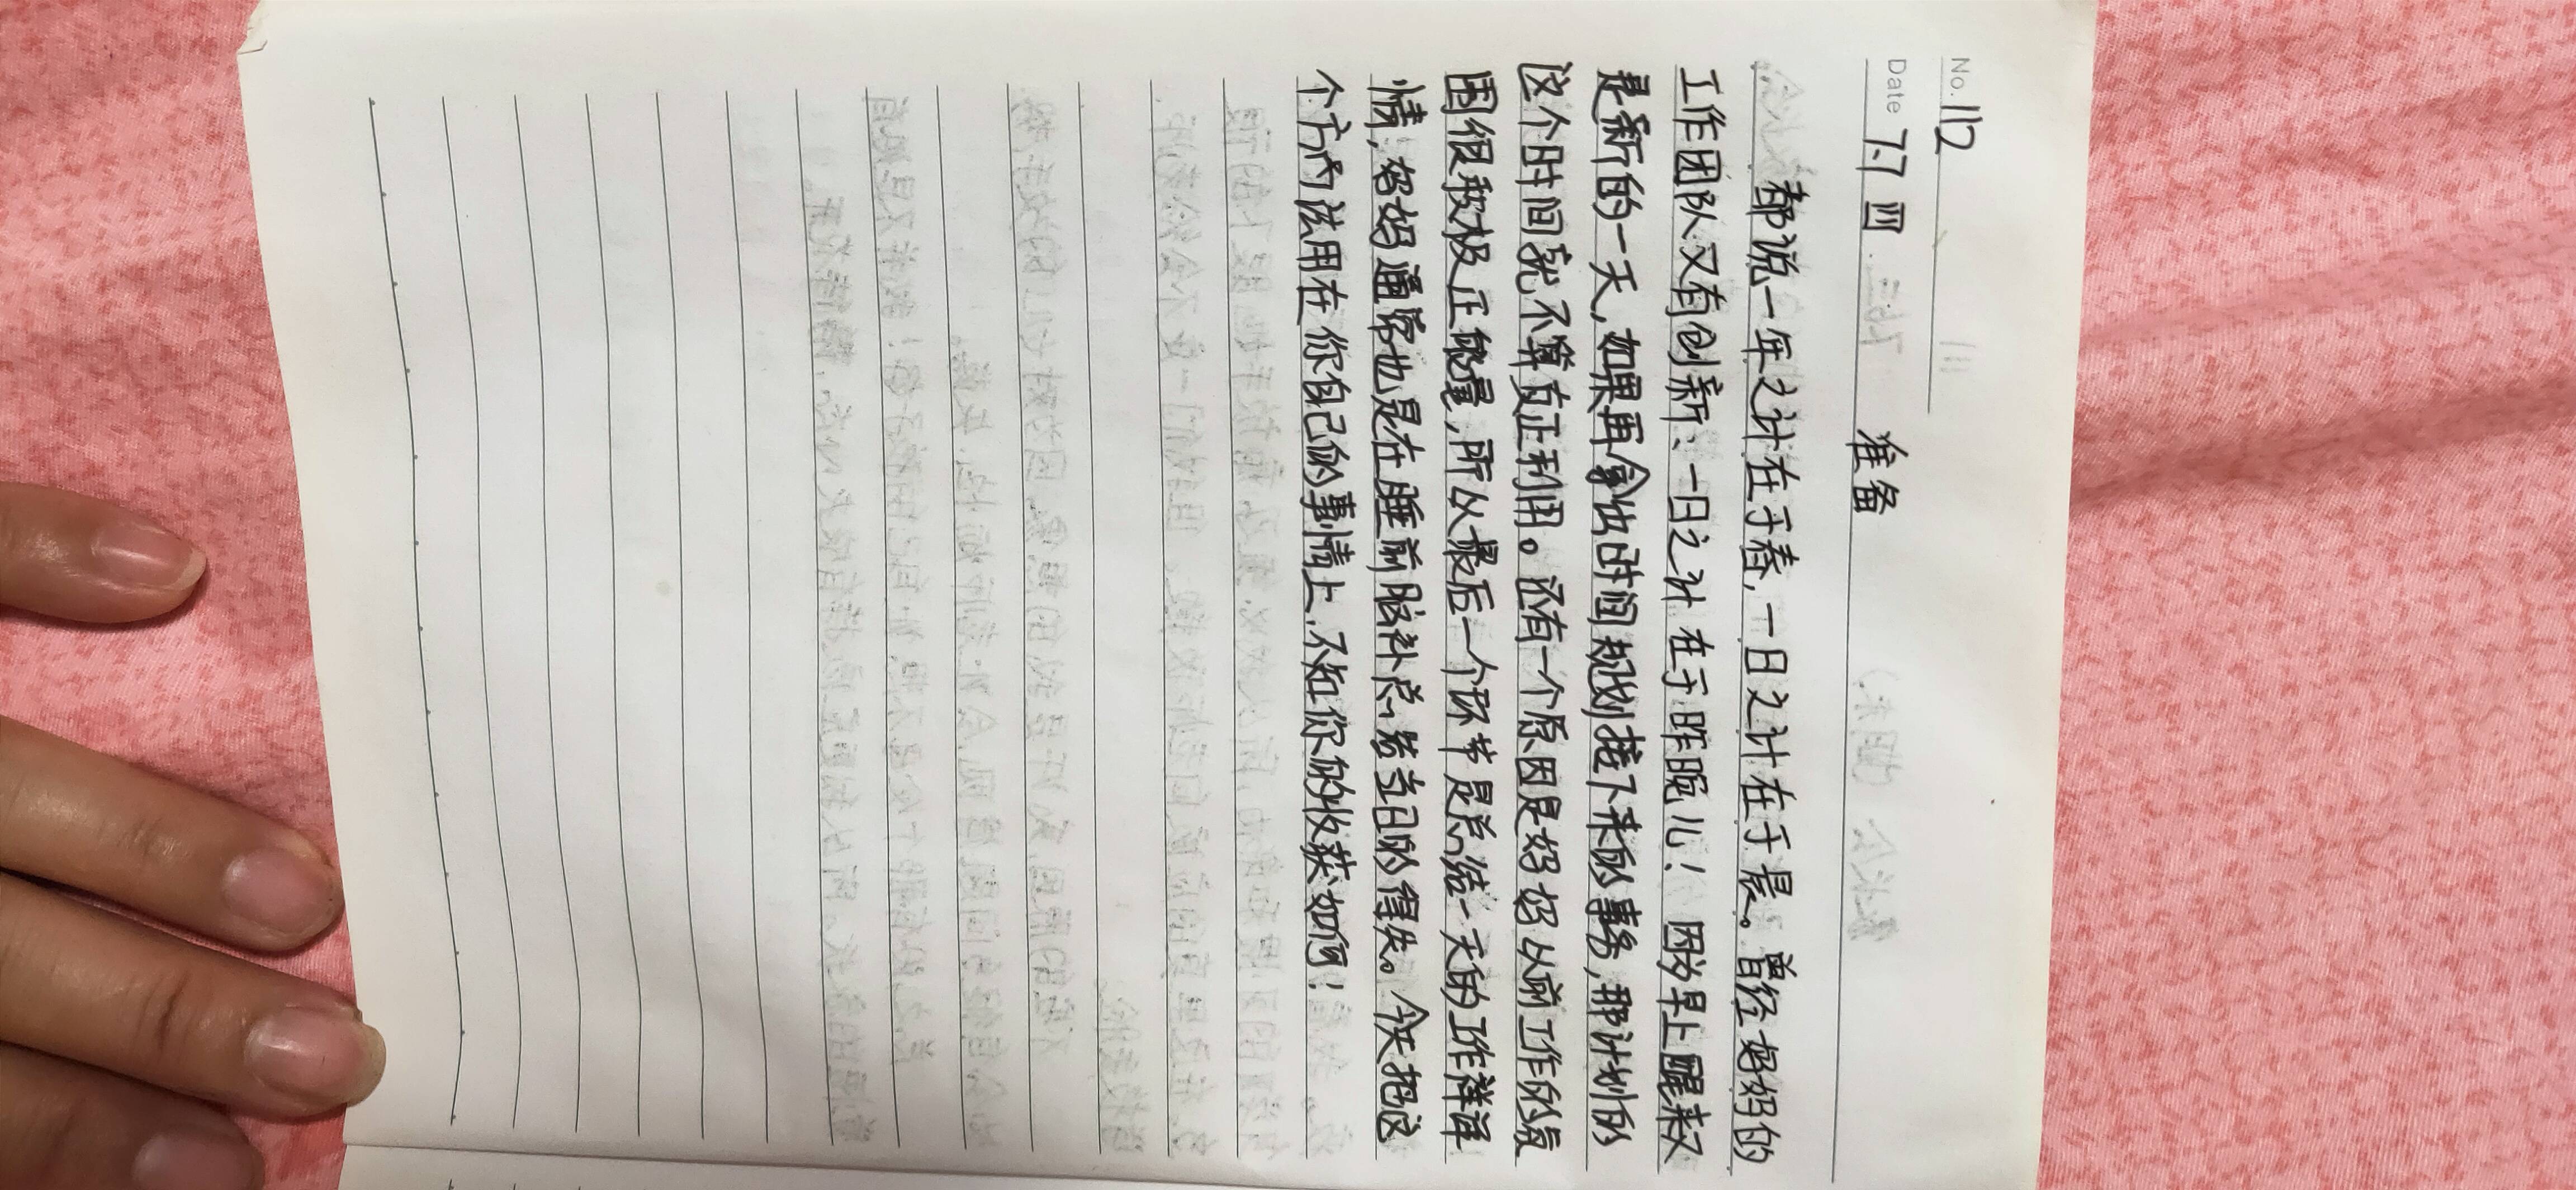 No. 112
Date 7.7 四 准备
都说一年之计在于春,一日之计在于晨。曾经妈妈的
工作团队又有创新:一日之计在于昨晚儿!因为早上醒来又
是新的一天,如果再拿出时间规划接下来的事务,那计划的
这个时间就不算真正利用。还有一个原因是妈妈以前工作的氛
围很积极正能量,所以最后一个环节是总结一天的工作详
情,妈妈通常也是在睡前脑补总结当日的得失。今天把这
个方法用在你自己的事情上,不知你的收获如何!